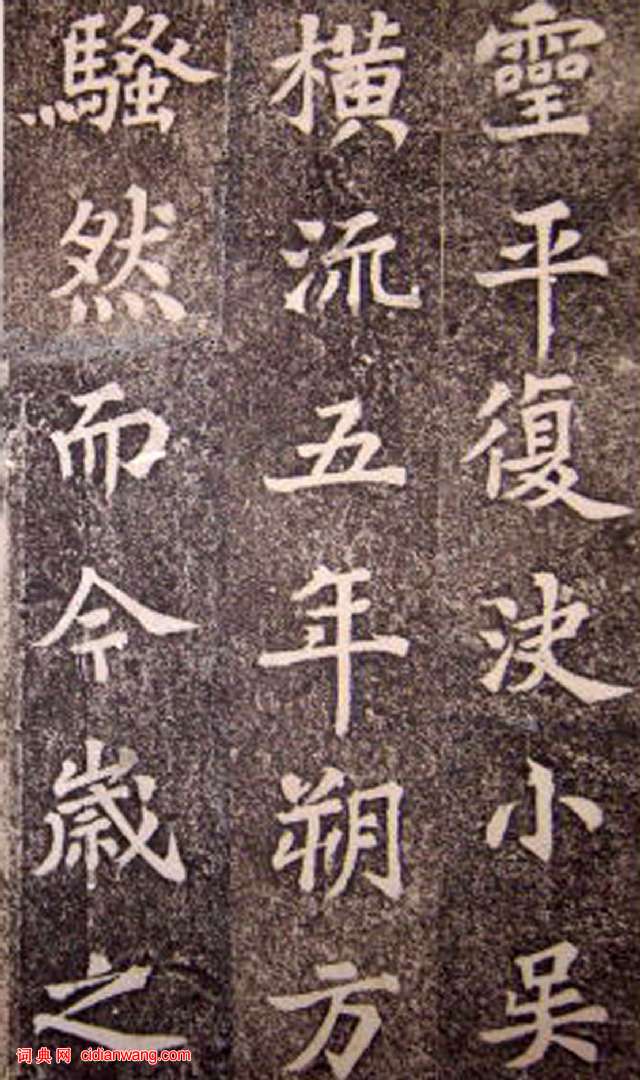 靈平復決小吴
橫流五年朔方
騷然而今歲之
词典网 cidianwang.com